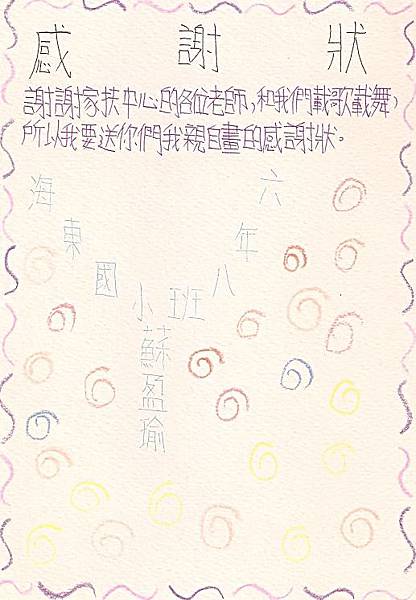 感謝狀
謝謝家扶中心的各位老師,和我們載歌載舞,
所以我要送你們我親自畫的感謝狀。
海東國小
六年八班
蘇盈瑜